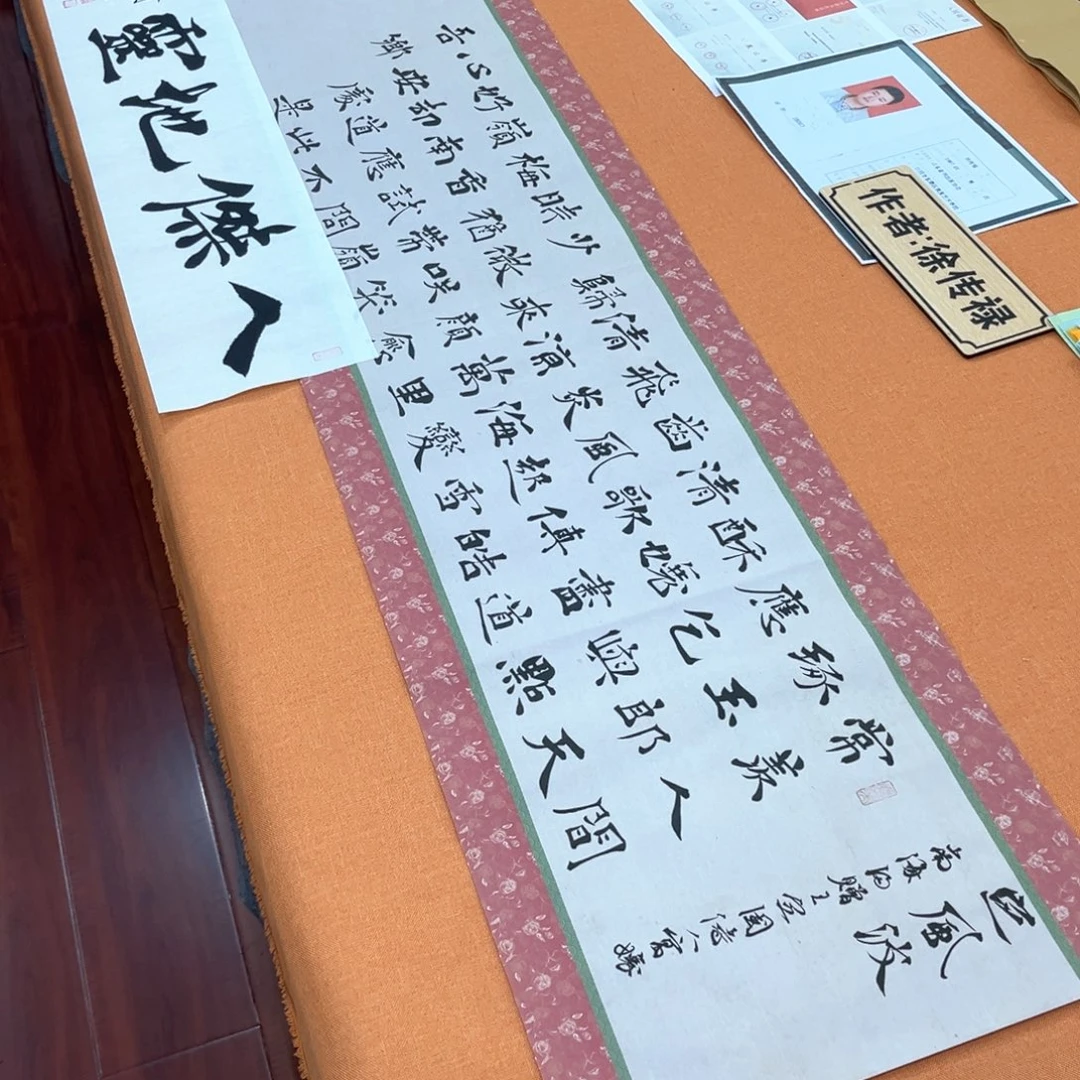 作者:徐传禄
人傑地靈
定風波
南海歸贈王定國侍人寓娘
常羡人間
琢玉郎天
應乞與點
酥娘盡道
清歌傳皓
齒風起雪
飛炎海變
清涼萬里
歸來顏愈
少微笑笑
時猶帶嶺
梅香試問
嶺南應不
好却道此
心安處是
吾鄉